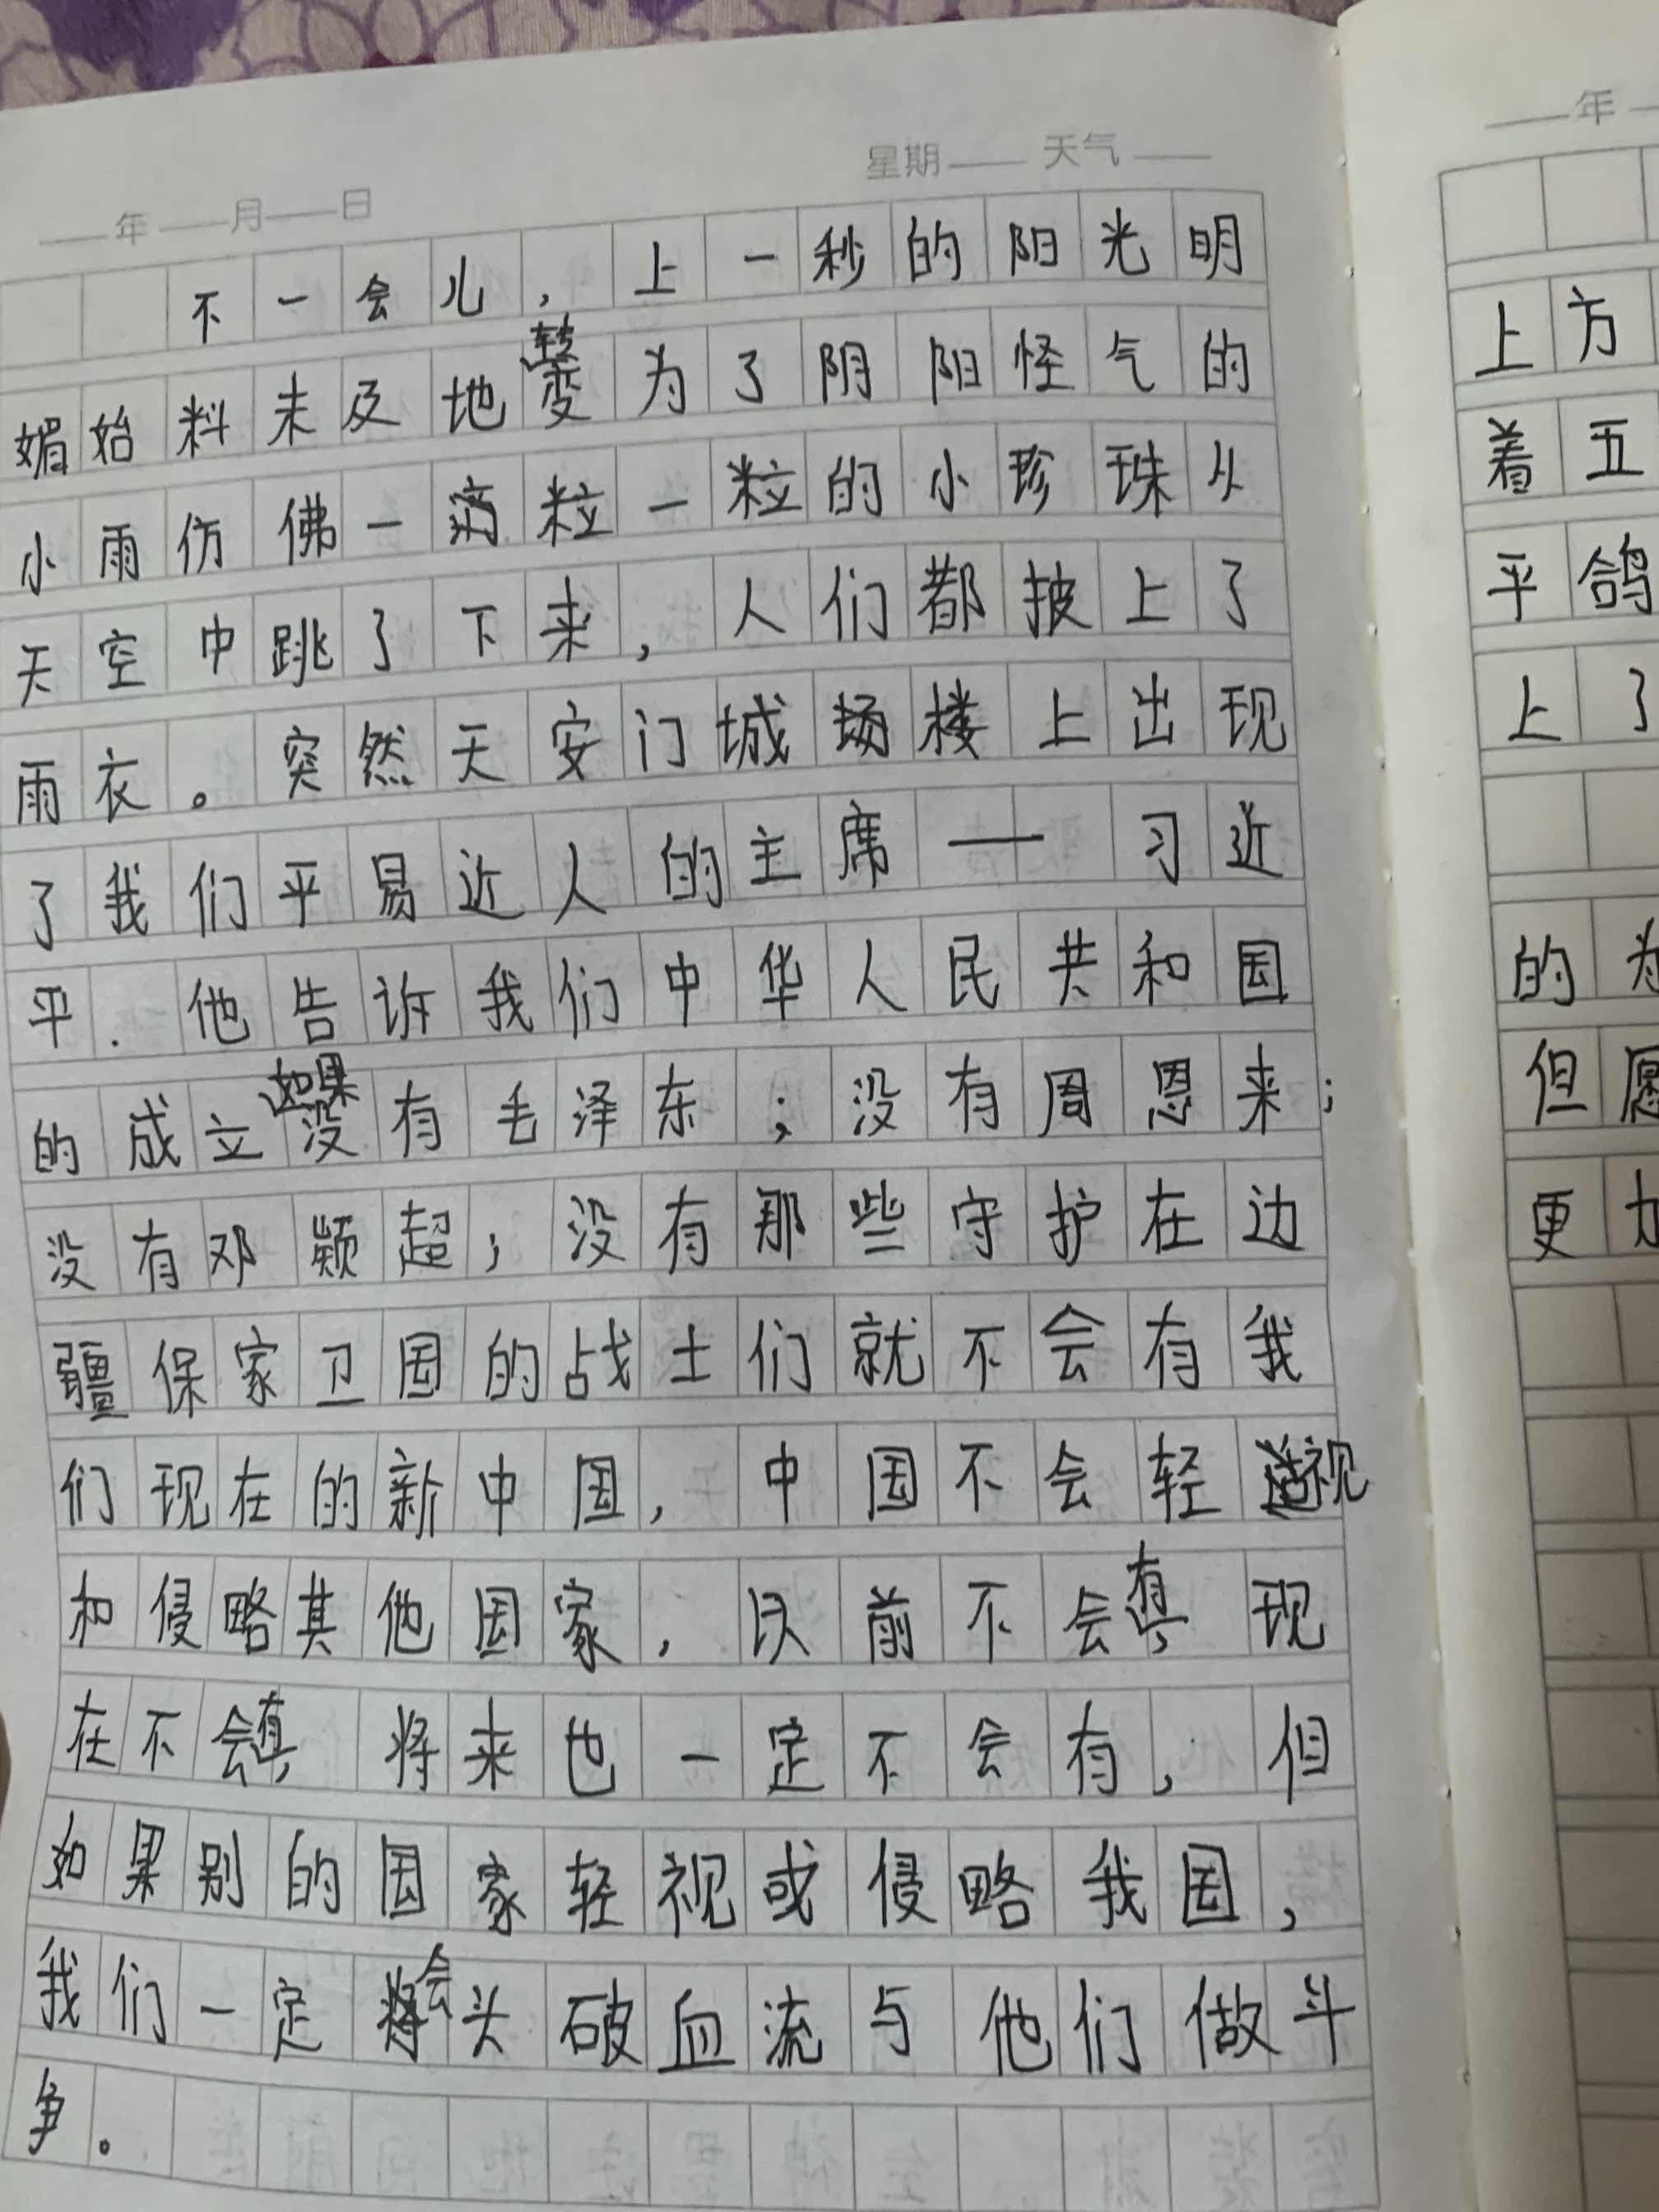 年 月 日 星期 天气
不一会儿，上一秒的阳光明
媚始料未及地转变为了阴阳怪气的
小雨仿佛一粒一粒的小珍珠从
天空中跳了下来，人们都披上了
雨衣。突然天安门城楼上出现
了我们平易近人的主席——习近
平.他告诉我们中华人民共和国
的成立如果没有毛泽东；没有周恩来；
没有邓颖超；没有那些守护在边
疆保家卫国的战士们就不会有我
们现在的新中国，中国不会轻视
和侵略其他国家，以前不会有，现
在不会有，将来也一定不会有，但
如果别的国家轻视或侵略我国，
我们一定会头破血流与他们做斗
争。
年
上方
着五
平鸽
上了
的为
但愿
更